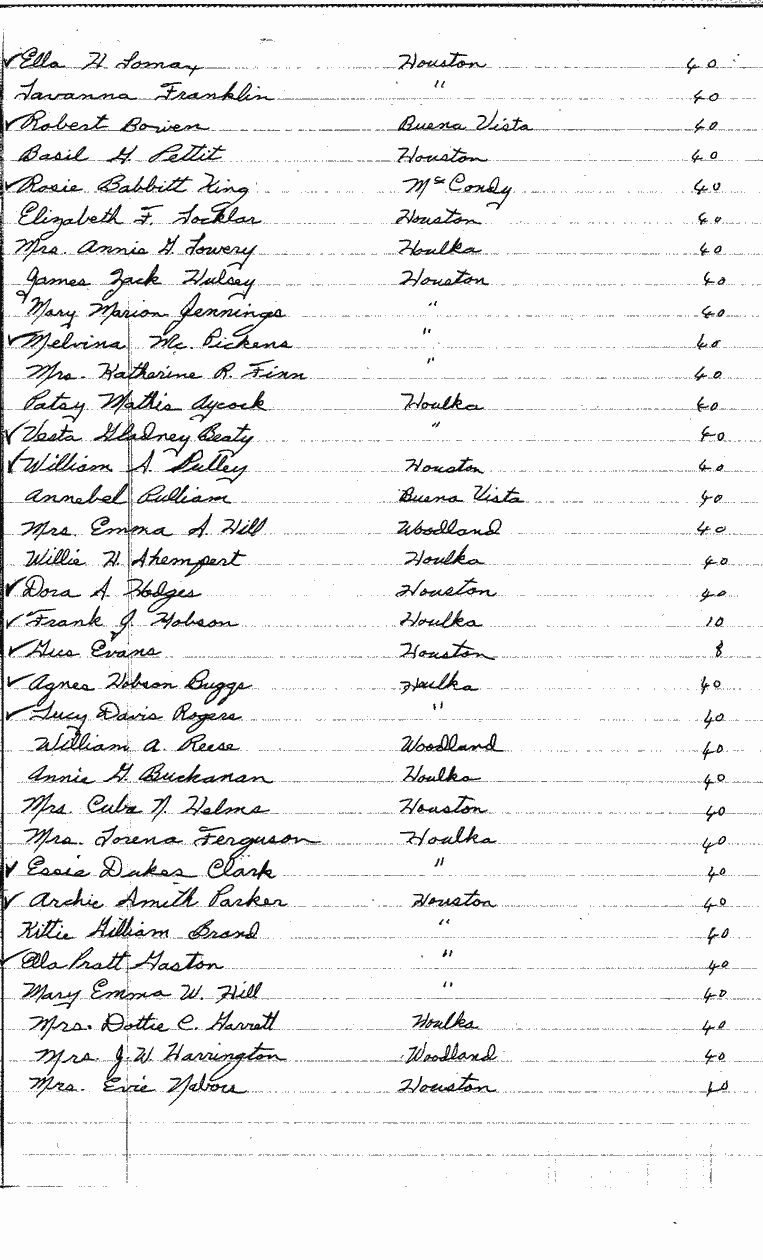 ✓ Ella H Lomax Houston 40
Lavanna Franklin " 40
✓ Robert Bowen Buena Vista 40
Basil G. Pettit Houston 40
✓ Rosie Babbitt King McCondy 40
Elizabeth F. Locklar Houston 40
Mrs. Annie G. Lowery Houlka 40
James Jack Hulsey Houston 40
Mary Marion Jennings " 40
✓ Melvina Mc. Pickens " 40
Mrs. Katherine R. Finn " 40
Patsy Mathis Aycock Houlka 40
✓ Vesta Gladney Beaty " 40
✓ William S. Pulley Houston 40
Annebel Pulliam Buena Vista 40
Mrs. Emma S. Hill Woodland 40
Willie H. Shempert Houlka 40
✓ Dora A. Hodges Houston 40
✓ Frank J. Hobson Houlka 10
✓ Gus Evans Houston 8
✓ Agnes Hobson Buggs Houlka 40
✓ Lucy Davis Rogers " 40
William A. Reese Woodland 40
Annie G. Buchanan Houlka 40
Mrs. Cuba N. Helms Houston 40
Mrs. Lorena Ferguson Houlka 40
✓ Essie Dukes Clark " 40
✓ Archie Smith Parker Houston 40
Kittie Gilliam Brand " 40
✓ Ola Pratt Gaston " 40
Mary Emma W. Hill " 40
Mrs. Dottie C. Garrett Houlka 40
Mrs. J.W. Harrington Woodland 40
Mrs. Evie Nabors Houston 40